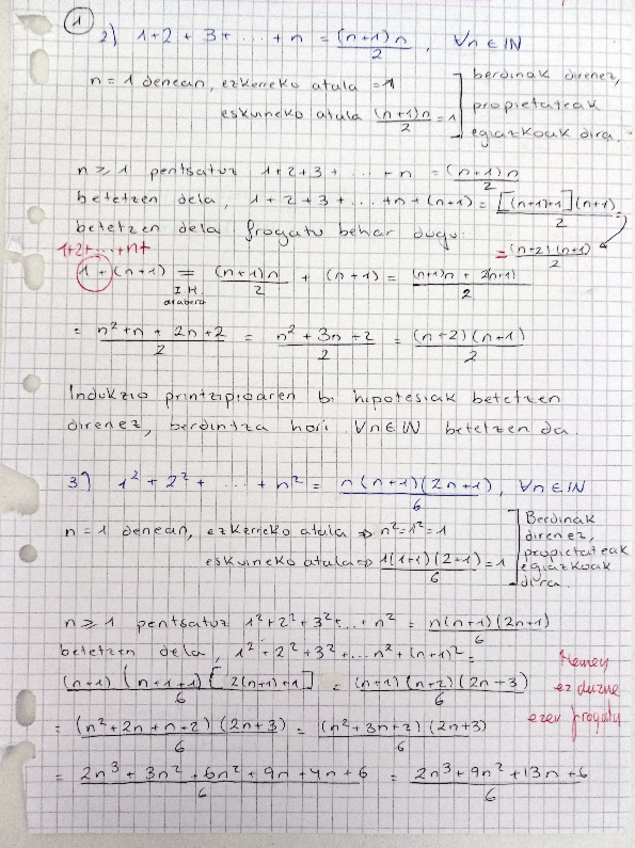 1
2) 1+2+3+ ... +n = (n+1)n / 2 , ∀n ∈ IN
n=1 denean, ezkerreko atala = 1
eskuineko atala (n+1)n / 2 = 1
berdinak direnez, propietateak egiazkoak dira.
n ≥ 1 pentsatuz 1+2+3+ ... +n = (n+1)n / 2
betetzen dela, 1+2+3+ ... +n+(n+1) = [(n+1)+1](n+1) / 2
betetzen dela frogatu behar dugu:
= (n+2)(n+1) / 2
1+2+...+n+
1+(n+1) = (n+1)n / 2 + (n+1) = (n+1)n + 2(n+1) / 2
I.H. arabera
= n²+n+2n+2 / 2 = n²+3n+2 / 2 = (n+2)(n+1) / 2
Indukzio printzipioaren bi hipotesiak betetzen
direnez, berdintza hori ∀n∈IN betetzen da.
3) 1²+2²+ ... +n² = n(n+1)(2n+1) / 6 , ∀n∈IN
n=1 denean, ezkerreko atala ⇒ n²=1²=1
eskuineko atala ⇒ 1(1+1)(2+1) / 6 = 1
Berdinak direnez, propietateak egiazkoak dira.
n ≥ 1 pentsatuz 1²+2²+3²+...+n² = n(n+1)(2n+1) / 6
betetzen dela, 1²+2²+3²+...n²+(n+1)² =
(n+1)(n+1+1)[2(n+1)+1] / 6 = (n+1)(n+2)(2n+3) / 6
= (n²+2n+n+2)(2n+3) / 6 = (n²+3n+2)(2n+3) / 6
= 2n³+3n²+6n²+9n+4n+6 / 6 = 2n³+9n²+13n+6 / 6
Hemen
ez duzue
ezer frogatu